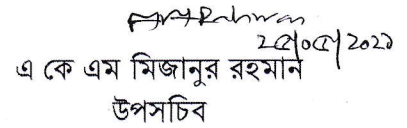 ২৫/০৫/২০২১
এ কে এম মিজানুর রহমান
উপসচিব